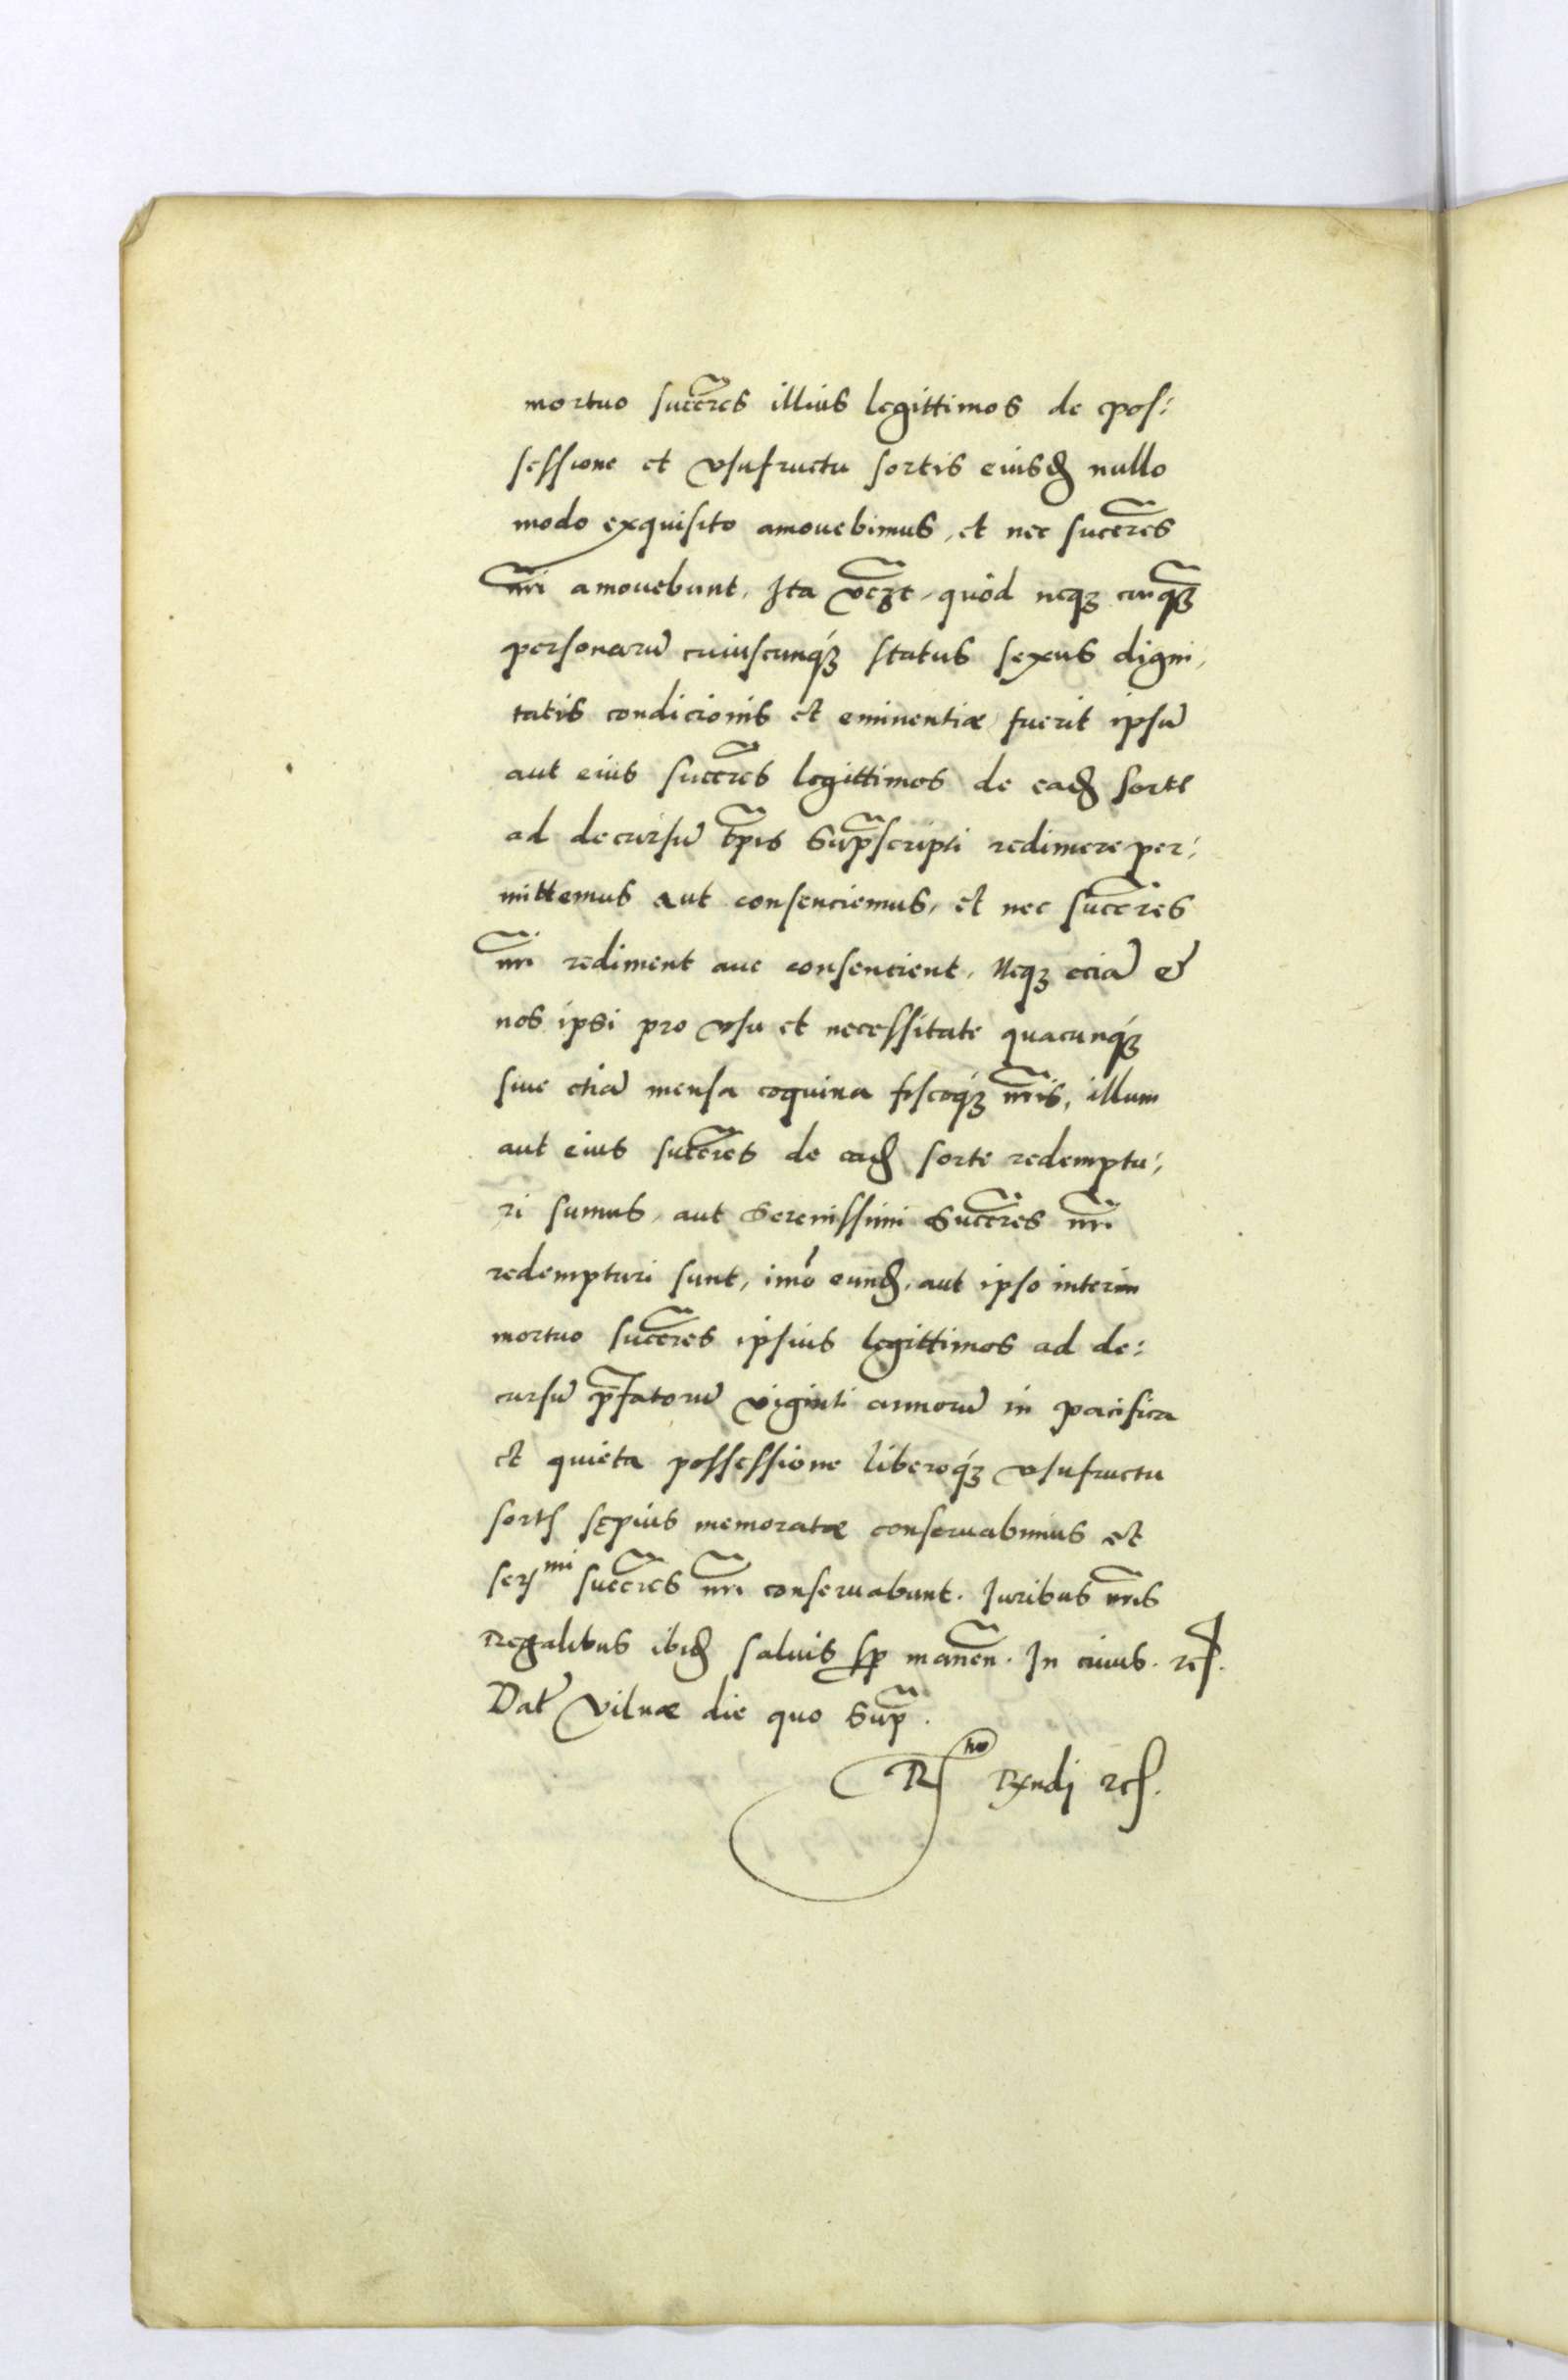 mortuo succ̃res illius legittimos de pos:
sessione et vsufructu sortis eiusđ nullo
modo exquisito amouebimus, et nec succ̃res
nr̃i amouebunt, Ita vĩȝt, quòd neqȝ cuiq̃ȝ
personarũ cuiuscunqȝ́ status sexus digni,
tatis condicionis et eminentiæ fuerit ipsũ
aut eius succ̃res legittimos de eađ sorte
ad decursũ tp̃is sup̃scripti redimere per:
mittemus aut consenciemus, et nec succ̃res
nr̃i rediment aut consencient, Neqȝ eciã et
nos ipsi pro vsu et necessitate quacunqȝ́
siue etiã mensa coquina fiscoqȝ́ nr̃is, illum
aut eius succ̃res de eađ sorte redemptu:
ri sumus, aut Serenissimi Succ̃res nr̃i
redempturi sunt, imò eunđ, aut ipso interim
mortuo succ̃res ipsius legittimos ad de:
cursũ p̃fatorũ viginti annorũ in pacifica
et quieta possessione liberoqȝ́ vsufructu
sortis sępius memoratæ conseruabimus et
serᵐⁱ succ̃res nr̃i conseruabunt. Iuribus nr̃is
Regalibus ibiđ saluis sp̱ manen̄. In cuius. rei.
Dat̃ Vilnæ die quo sup̃.